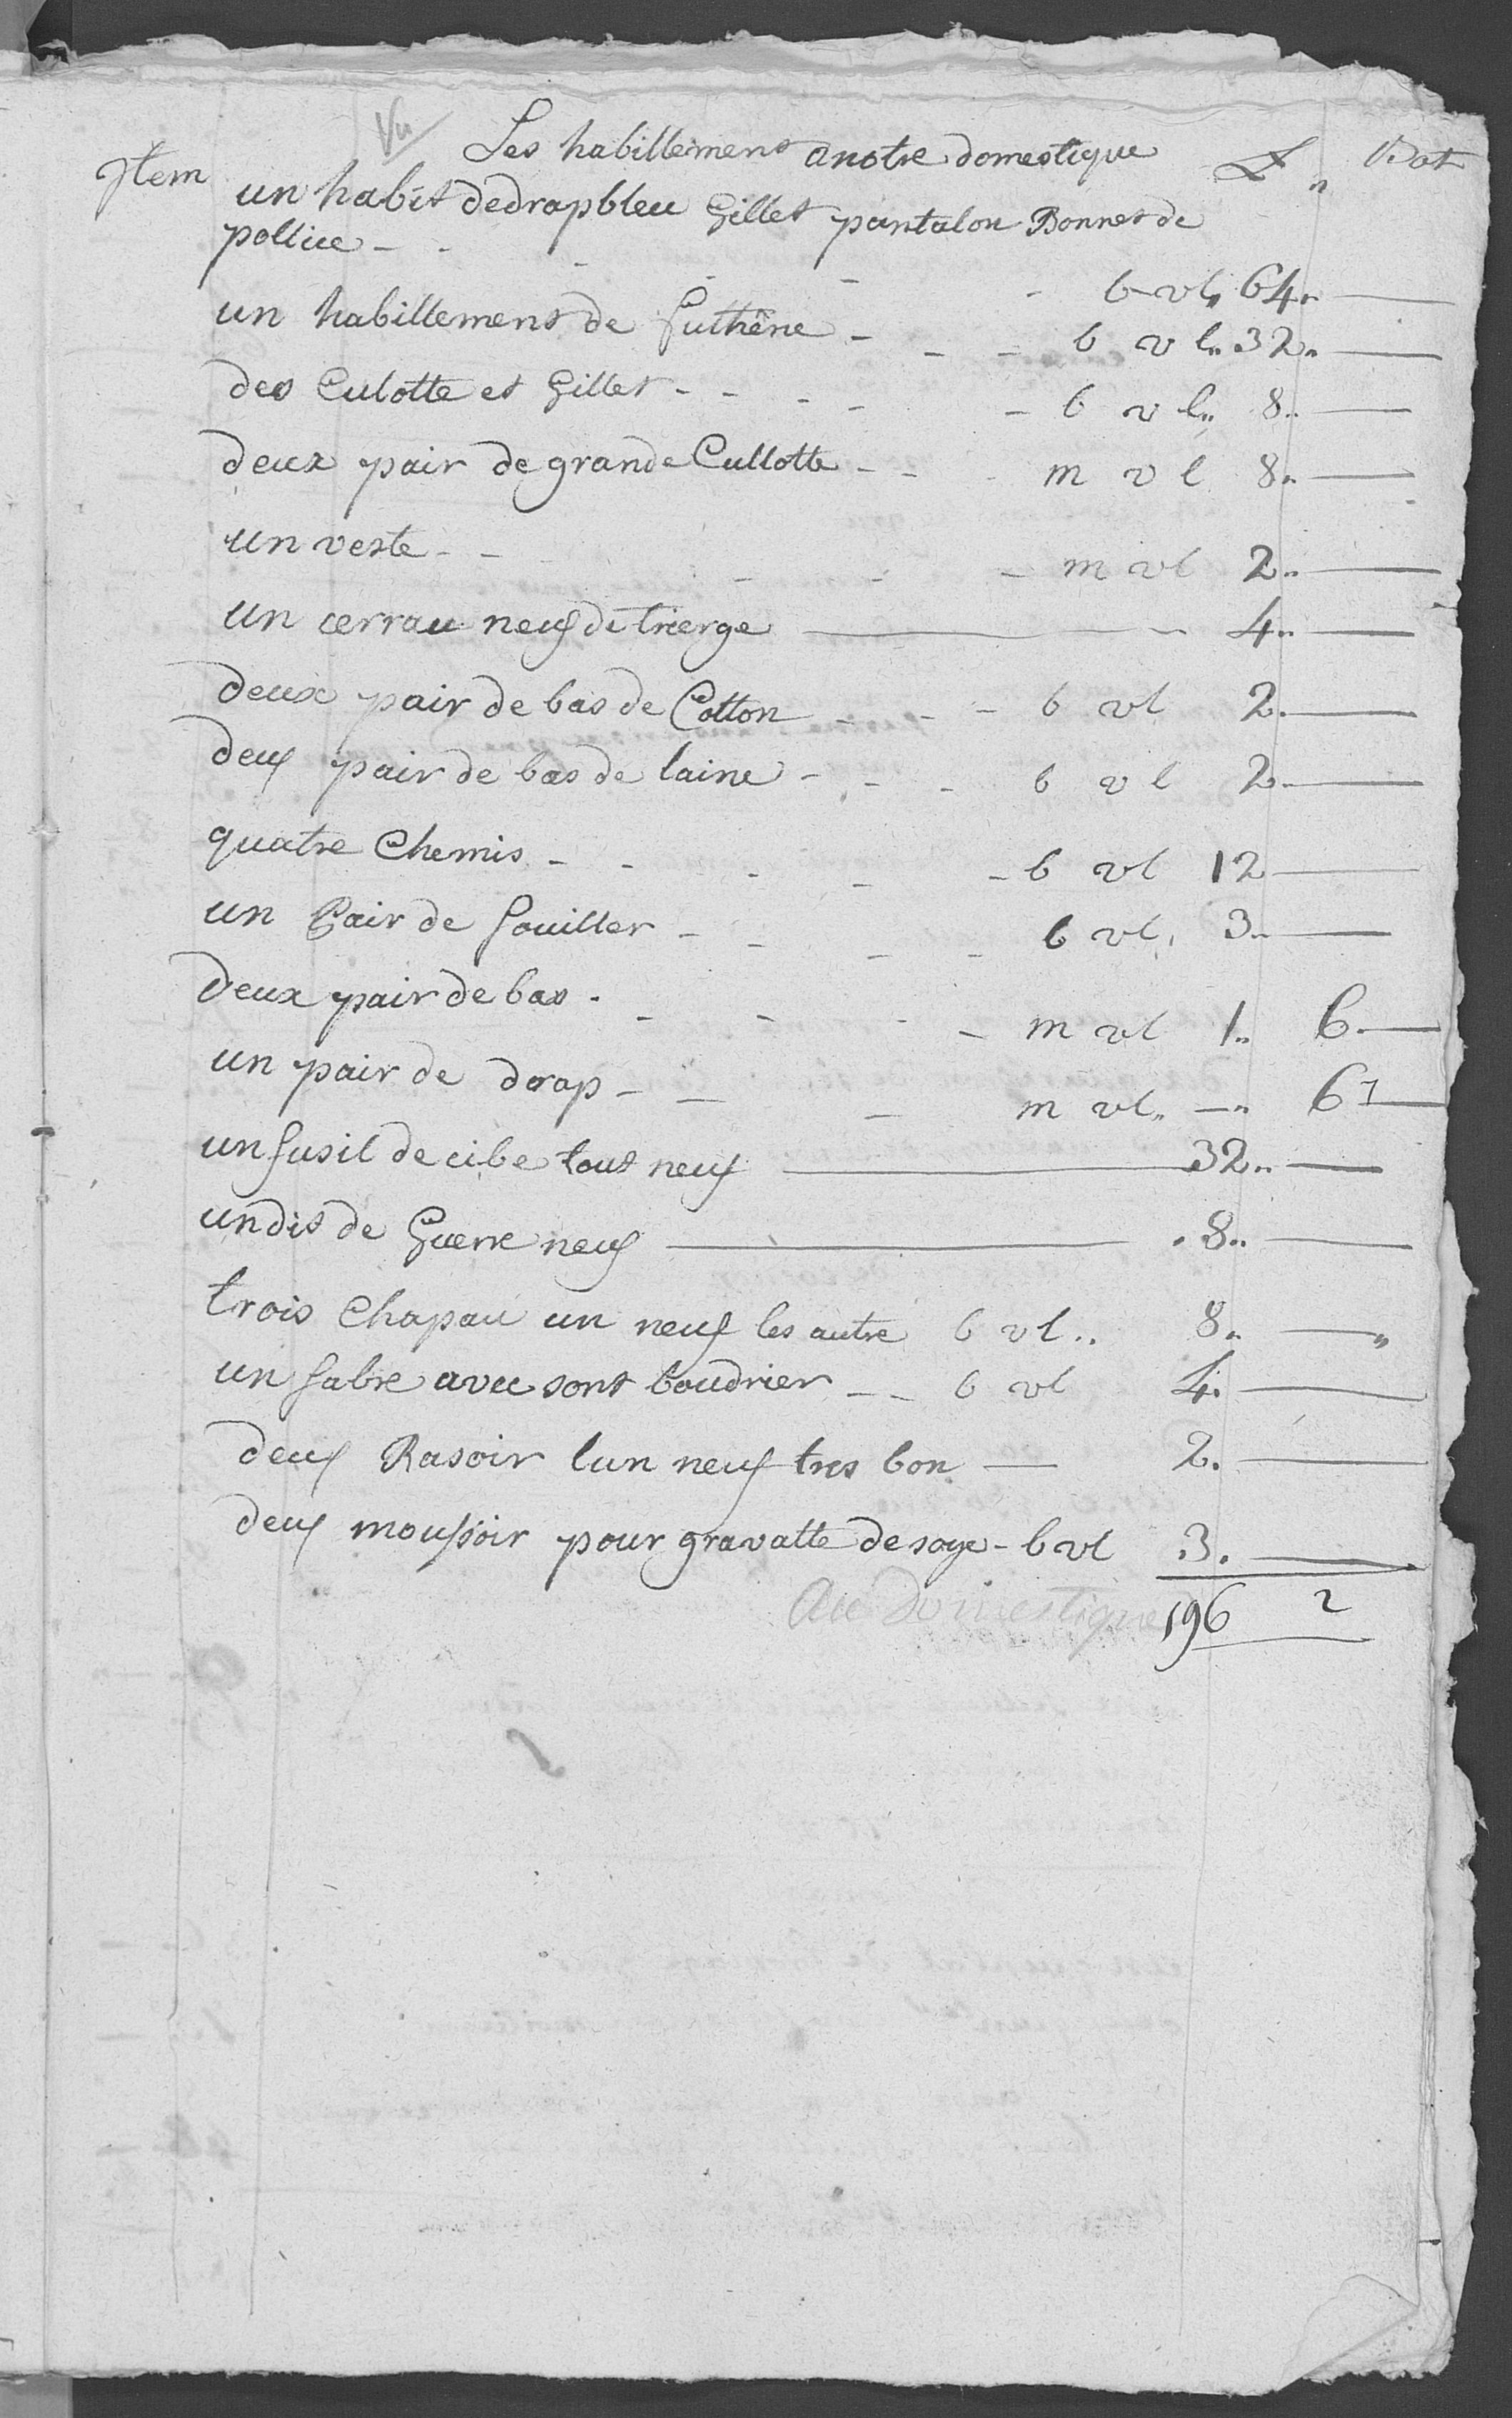 Vu
Les habillement a notre domestique £ „ Bat
Item un habit de drap bleu Gillet pantalon Bonnet de
pollice - - - - - - b vl„ 64„ —
un habillement de Futhéne - - - b v l„ 32„ —
des Culotte et Gillet - - - - - b v l„ 8„ —
deux pair de grande Cullotte - - - m v l 8„ —
un veste - - - - - - m vl 2„ —
un cerrau neuf de trierge — „ 4„ —
deux pair de bas de Cotton - - - b vl 2. —
deux pair de bas de laine - - - b v l 2 —
quatre Chemis - - - - - b vl 12 —
un Pair de souiller - - - - b vl, 3„ —
deux pair de bas - - - - - m vl 1„ 6. —
un pair de drap - - - m vl„ —„ 6 —
un fusil de cible tout neuf — 32„ —
un dit de Guerre neuf — . 8„ —
trois Chapau un neuf les autre b vl„ 8„ —„
un sabre avec sont boudrier - - b vl 4. —
deux Rasoir lun neuf tres bon — 2. —
deux moussoir pour gravatte de soye - b vl 3. —
Au Domestique 196 2